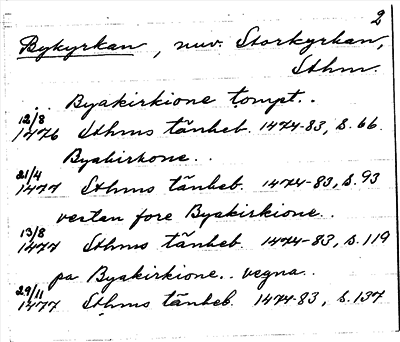 2
Bykyrkan, nuv. Storkyrkan,
Sthm.
.. Byakirkione tompt..
12/8
1476 Sthms tänkeb. 1474-83, s. 66.
Byakirkone..
21/4
1477 Sthms tänkeb. 1474-83, s. 93
vestan fore Byakirkione..
13/8
1477 Sthms tänkeb. 1474-83, s. 119
pa Byakirkione.. vegna..
29/11
1477 Sthms tänkeb. 1474-83, s. 137